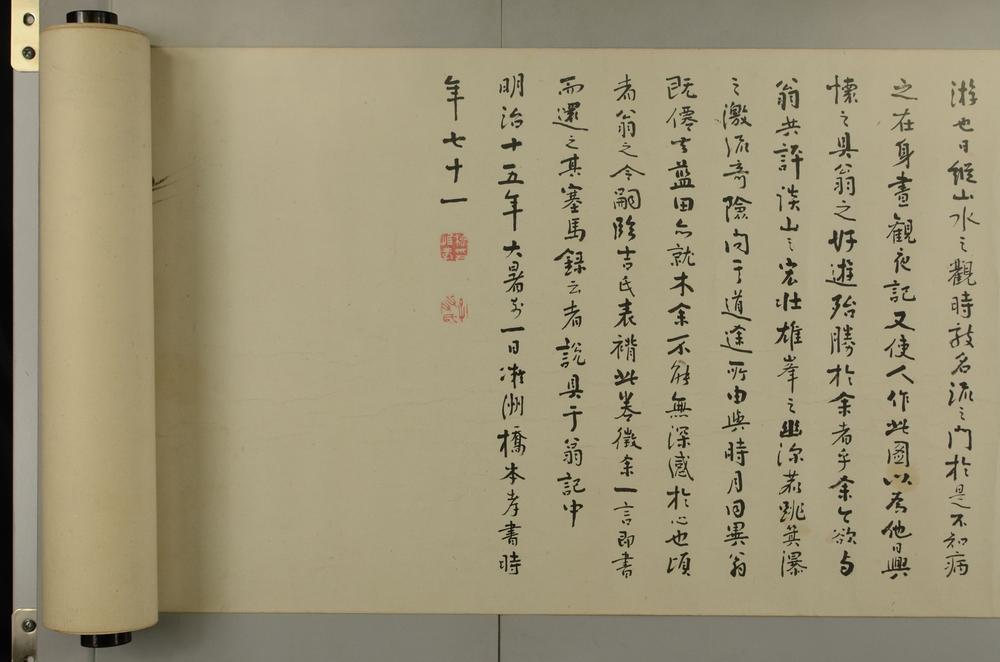 游也日縱山水之觀時敲名流之門於是不知病
之在身晝觀夜記又使人作此圖以為他日興
懷之具翁之好遊殆勝於余者乎余今欲与
翁共評談山之宏壯雄峯之幽深若跳箕瀑
之激流奇險向于道途所由與時月同異翁
既僊去藍田亦就木余不能無深感於心也頃
者翁之令嗣臨吉氏表褙此卷徵余一言即書
而還之其塞馬錄云者說具于翁記中
明治十五年大暑前一日 洲橋本孝書時
年七十一